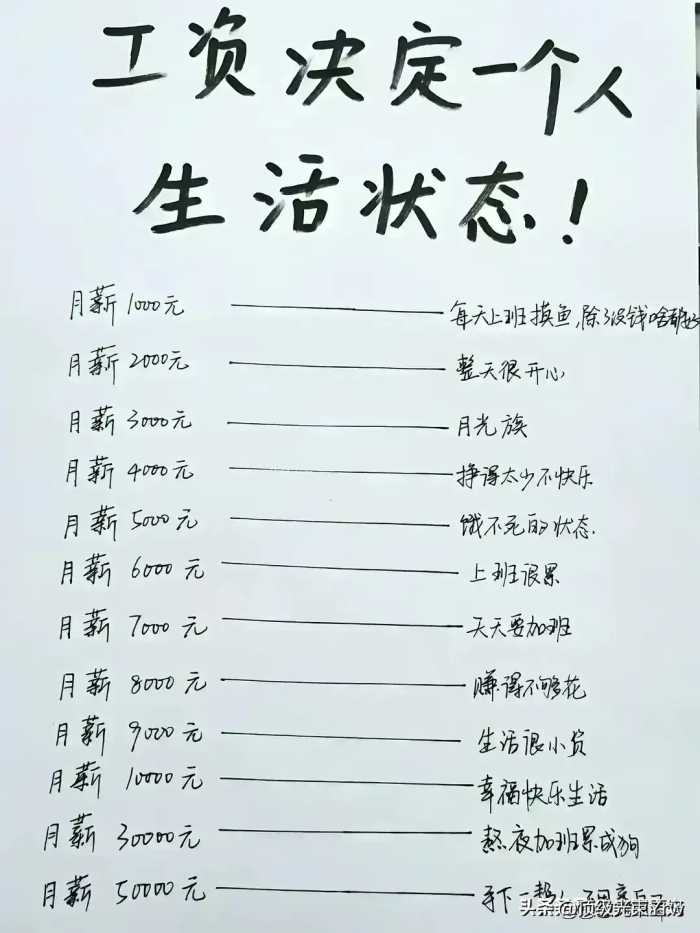 工资决定一个人
生活状态！
月薪1000元 每天上班摸鱼,除了没钱啥都好
月薪2000元 整天很开心
月薪3000元 月光族
月薪4000元 挣得太少不快乐
月薪5000元 饿不死的状态.
月薪6000元 上班很累
月薪7000元 天天要加班
月薪8000元 赚得不够花
月薪9000元 生活很小资
月薪10000元 幸福快乐生活
月薪30000元 熬夜加班累成狗
月薪50000元 手下一帮人
头条@顶级光束君好